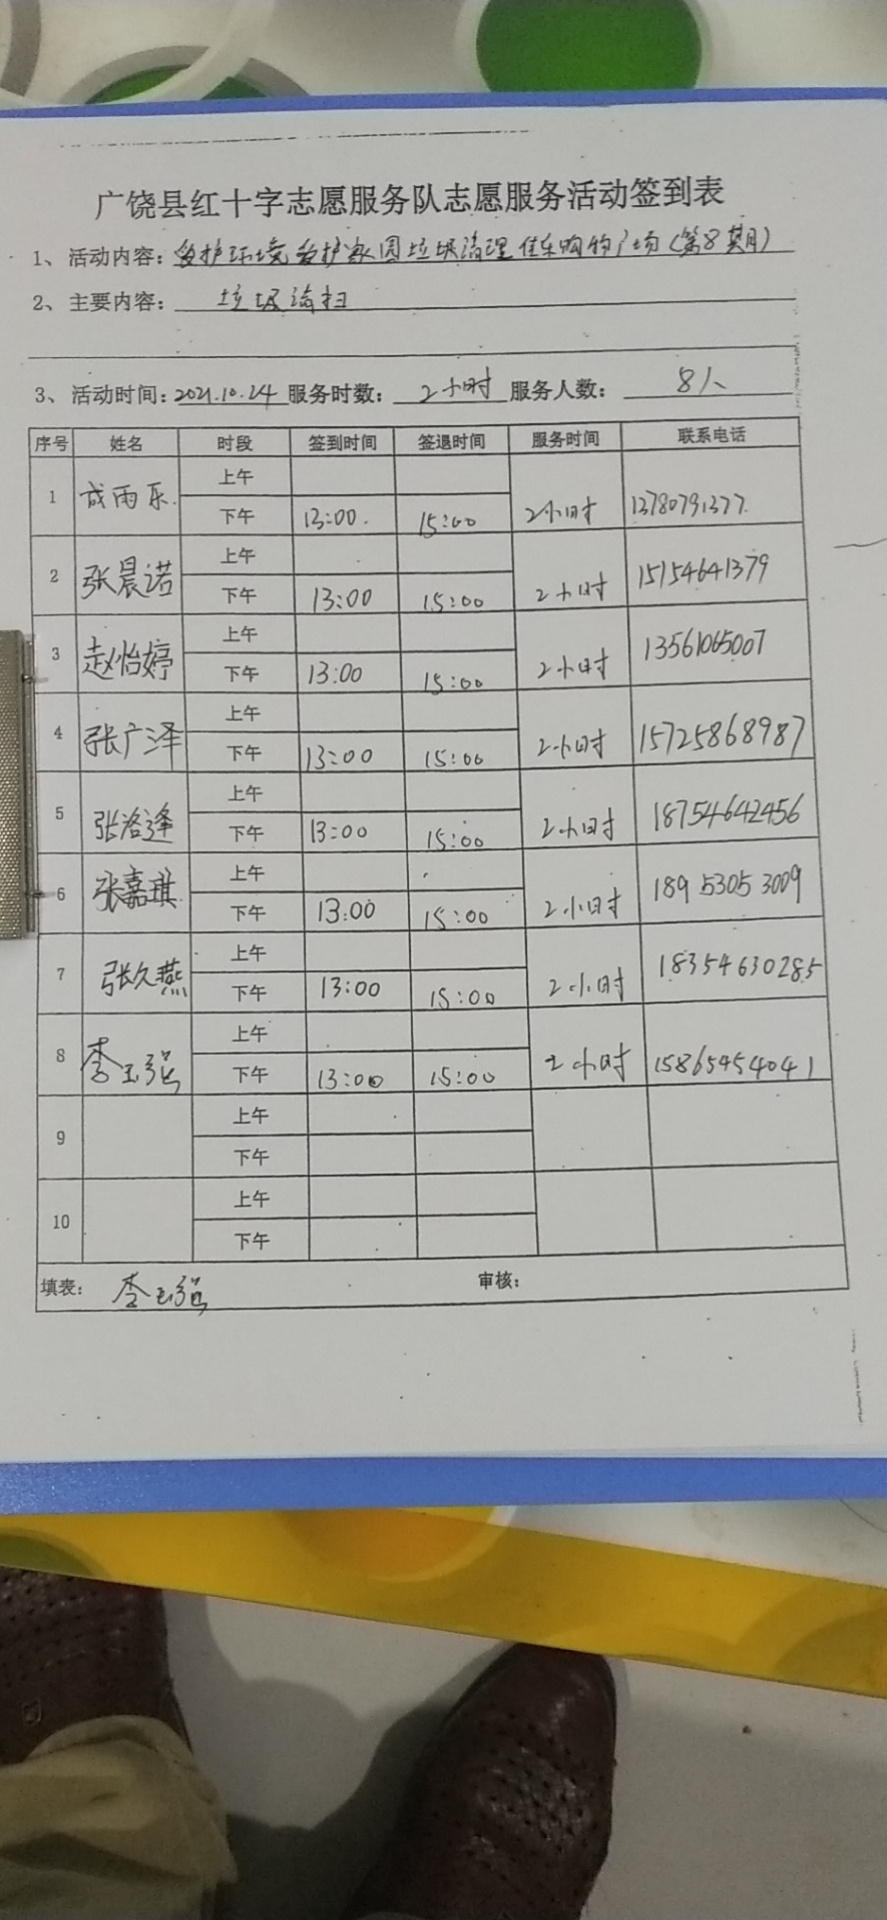 广饶县红十字志愿服务队志愿服务活动签到表
1、活动内容：爱护环境爱护家园垃圾清理佳乐购物广场（第8期）
2、主要内容：垃圾清扫
3、活动时间：2021.10.24 服务时数：2小时 服务人数：8人
序号 姓名 时段 签到时间 签退时间 服务时间 联系电话
1 成雨乐 上午
下午 13:00 15:00 2小时 13780791377
2 张晨诺 上午
下午 13:00 15:00 2小时 15154641379
3 赵怡婷 上午
下午 13:00 15:00 2小时 13561065007
4 张广泽 上午
下午 13:00 15:00 2小时 15725868987
5 张洛逢 上午
下午 13:00 15:00 2小时 18754642456
6 张嘉琪 上午
下午 13:00 15:00 2小时 189 5305 3009
7 张久燕 上午
下午 13:00 15:00 2小时 18354630285
8 李玉强 上午
下午 13:00 15:00 2小时 15865454041
9 上午
下午
10 上午
下午
填表：李玉强 审核：